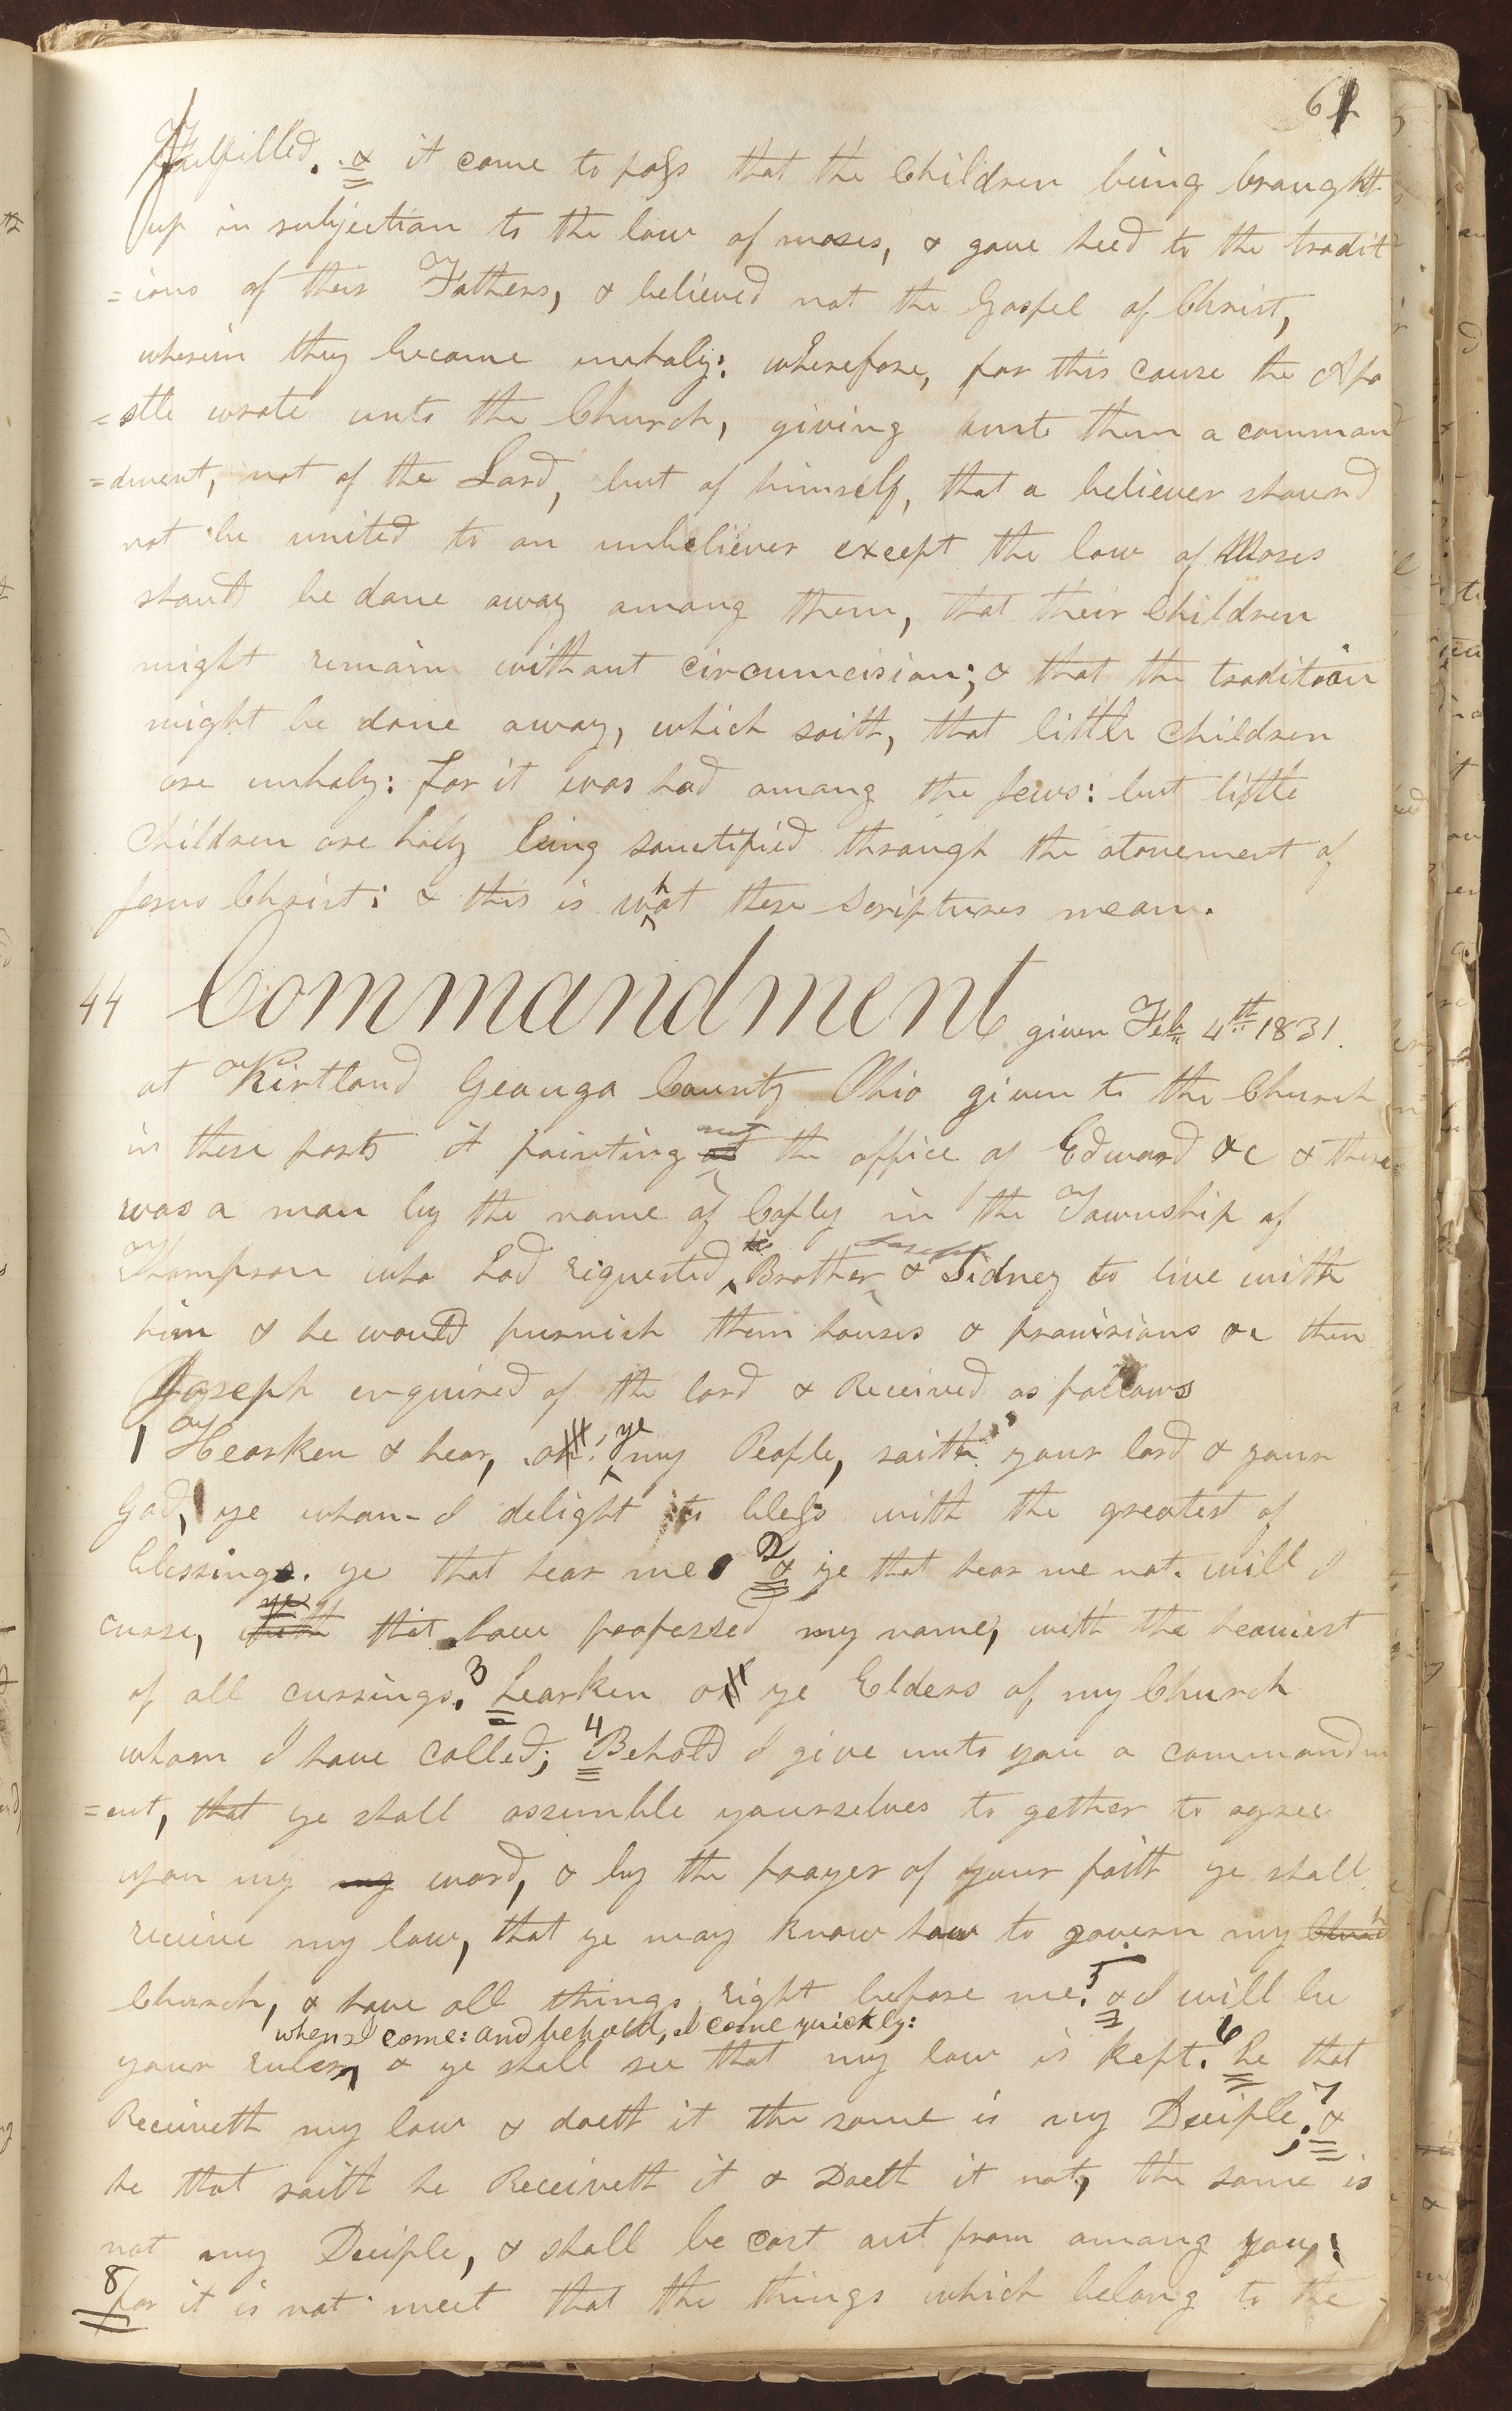 61
Fulfilled. & it came to pass that the Children being braught
up in subjection to the law of moses, & gave heed to the tradit
=ions of their Fathers, & believed not the Gospel of Christ,
wherein they became unholy: wherefore, for this cause the Apo
=stle wrote unto the Church, giving unto them a command
=dment, not of the Lord, but of himself, that a believer should
not be united to an unbeliever except the law of Moses
should be done away among them, that their Children
might remain without circumcision; & that the tradition
might be done away, which saith, that little children
are unholy: for it was had among the Jews: but little
Children are holy being sanctified through the atonement of
Jesus Christ: & this is what these Scriptures mean.
44 Commandment given Feb. 4th 1831.
at Kirtland Geauga County Ohio given to the Church
in these parts it pointing out the office of Edward &c & there
was a man by the name of Copley in the Township of
Thompson who had requested Brother Joseph & Sidney to live with
him & he would furnish them houses & provisions &c then
Joseph enquired of the lord & Received as follows
1 Hearken & hear, oh ye my People, saith your lord & your
God, ye whom I delight to bless with the greatest of
blessings. ye that hear me 2 & ye that hear me not. will I
curse, ye that have professed my name, with the heaviest
of all cursings. 3 hearken oh ye Elders of my Church
whom I have called; 4 Behold I give unto you a commandm
=ent, that ye shall assemble yourselves to gether to agree
upon my my word, & by the prayer of your faith ye shall
receive my law, that ye may know how to govern my Church
Church, & have all things right before me. 5 & I will be
when I come: and behold, I come quickly:
your ruler, & ye shall see that my law is kept. 6 he that
Receiveth my law & doeth it the same is my Deciple; 7 &
he that saith he Receiveth it & Doeth it not, the same is
not my Deciple, & shall be cast out from among you;
8 for it is not meet that the things which belong to the